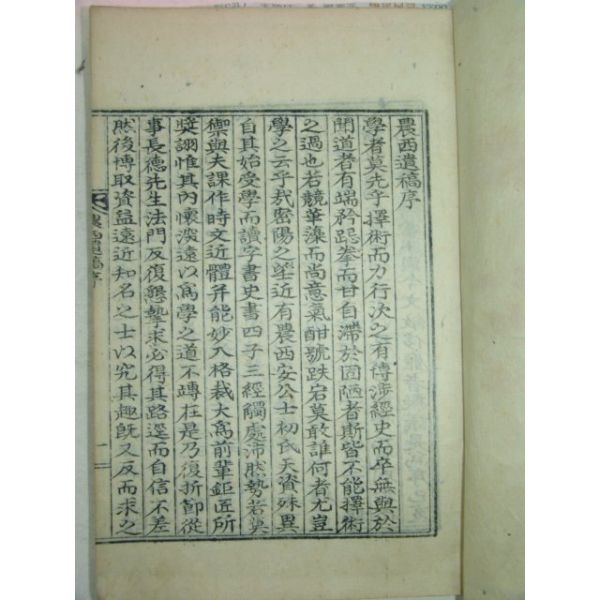 農西遺稿序
學者莫先乎擇術而力行次之有博涉經史而卒無與於
聞道者有端矜跽拳而甘自滯於固陋者斯皆不能擇術
之過也若競華藻而尚意氣酣號跌宕莫敢誰何者尤豈
學之云乎哉密陽之
近有農西安公士初氏天資殊異
自其始受學而讀字書史書四子三經觸處沛然勢若莫
禦與夫課作時文近體并能妙入格裁大為前輩鉅匠所
獎詡惟其內懷深遠以為學之道不專在是乃復折節從
事長德先生法門反復懇摯求必得其路逕而自信不差
然後博取資益遠近知名之士以究其趣旣又反而求之
農西遺稿序
一